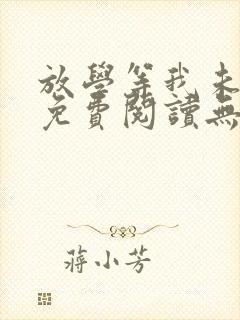 放學等我未
免費閱讀無
蔣小芳